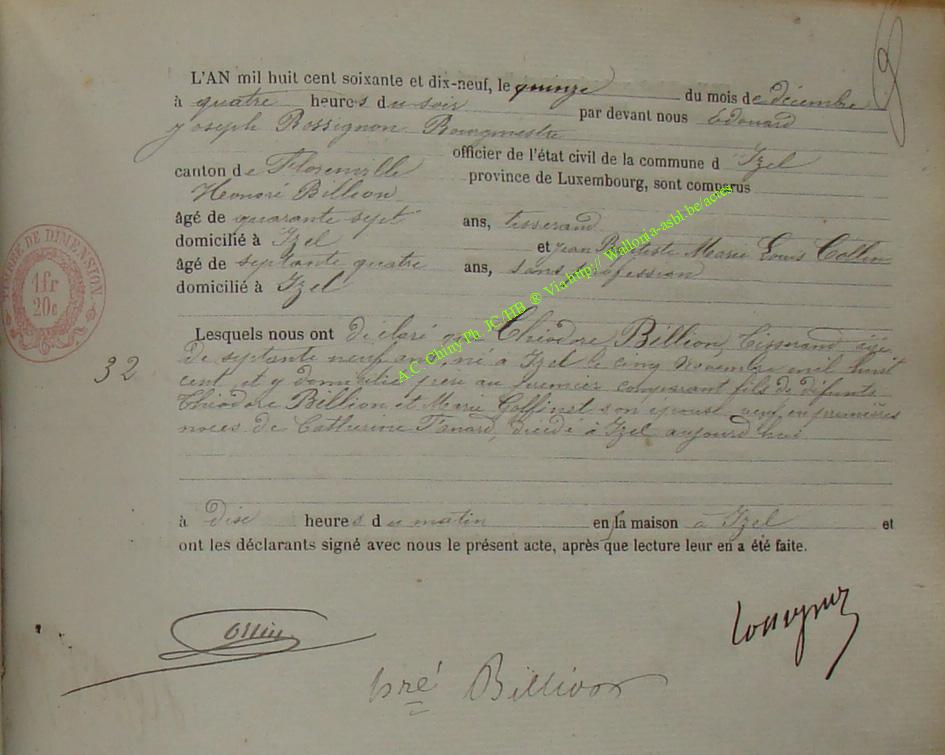 L'AN mil huit cent soixante et dix-neuf, le quinze du mois de décembre
à quatre heures du soir par devant nous Edouard
Joseph Rossignon Bourgmestre
officier de l'état civil de la commune d'Izel
canton de Florenville province de Luxembourg, sont comparus
Honoré Billion
âgé de quarante sept ans, tisserand
domicilié à Izel et Jean Baptiste Marie Louis Collin
âgé de septante quatre ans, sans profession
domicilié à Izel
Lesquels nous ont déclaré que Théodore Billion, tisserand, âgé
de septante neuf ans, né à Izel le cinq novembre mil huit
cent, et y domicilié, père au premier comparant fils de défunts
Théodore Billion et Marie Goffinet son épouse, veuf en premières
noces de Catherine Panard, décédé à Izel aujourd'hui
à dix heures du matin en sa maison à Izel et
ont les déclarants signé avec nous le présent acte, après que lecture leur en a été faite.
32
TIMBRE DE DIMENSION
1fr
20c
A.C. Chiny Ph. JC/HB ® Via http:// Wallonia-asbl.be/actes
Collin
Rossignon
hré Billion